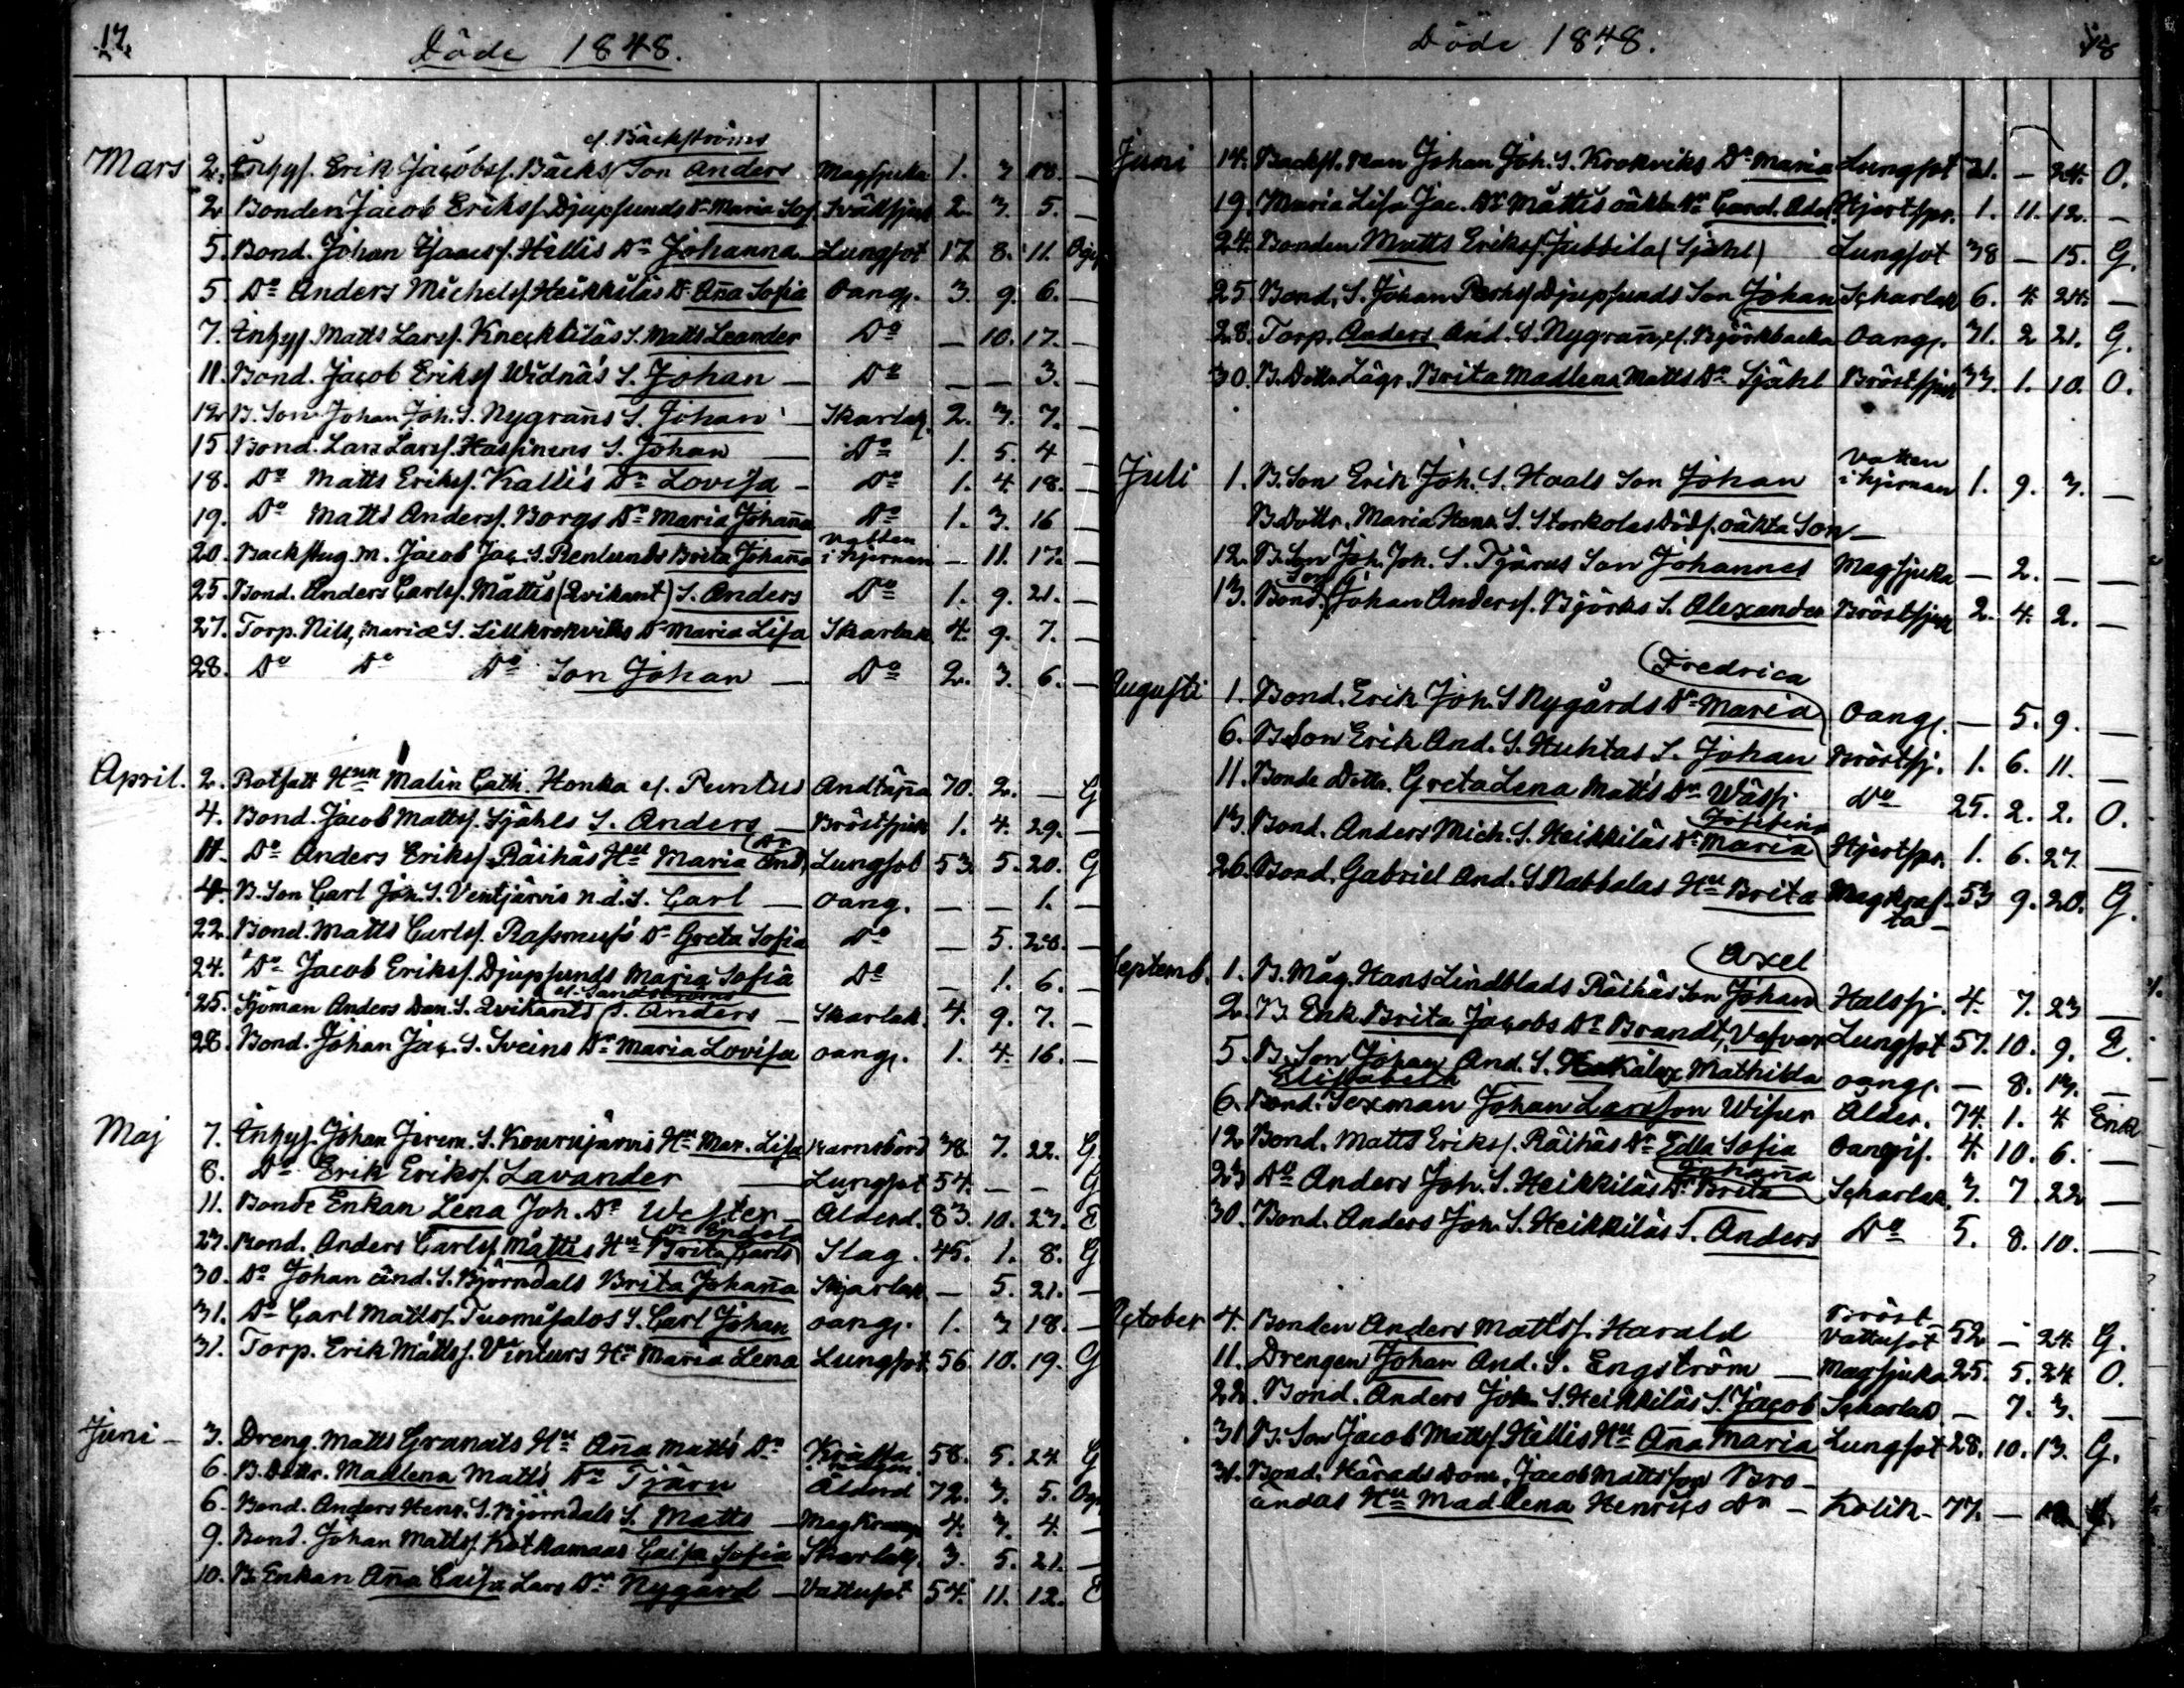 17.
Döde 1848.
el. Bäckströms
Mars 2. Inhys. Erik Jacobss. Bäcks Son Anders Magsjuka 1. 3 18. —
2 Bonden Jacob Erikss. Djupsunds Dr Maria Sof. 2. 3. 5. —
5. Bond. Johan Isaacss. Hillis Dr Johanna Lungsot 17. 8. 11. Ogif
5 Do Anders Michelss. Heikkiläs Dr Aña Sofia oang. 3. 9. 6. —
7. Inhys. Matts Larss. Knecktiläs S. Matts Leander Do — 10. 17. —
11. Bond. Jacob Erikss. Widnäs S. Johan — Do — — 3. —
12 B. Son Johan Joh. S. Nygrañs S. Johan — Skarlak. 2. 3. 7. —
15 Bond. Lars Larss. Hassinens S. Johan — Do 1. 5. 4 —
18. Do Matts Erikss. Kallis Dr Lovisa — Do 1. 4. 18. —
19. Do Matts Anderss. Borgs Dr Maria Johaña Do 1. 3. 16 —
20. Backstug. m. Jacob Jac. S. Renlunds Brita Johaña vatten i hjernan — 11. 17. —
25. Bond. Anders Carlss. Mattis (Qvikant) S. Anders Do 1. 9. 21. —
27. Torp. Nils Mariæ S. Lillkrokviks Dr Maria Lisa Skarlak 4. 9. 7. —
28. Do Do Do Son Johan — Do 2. 3. 6. —
April. 2. Rotfatt. Hun Malin Cath. Honka el. Puntus Andtäpa 70. 2. — G
4. Bond. Jacob Mattss. Sjähls S. Anders — Bröstsjuk 1. 4. 29. —
11. Do Anders Erikss. Räihäs Hu Maria And. Dr Lungsot 53. 5. 20. G
4. B. Son Carl Joh. S. Ventjärvis n.d. S. Carl — oang. — — 1. —
22. Bond. Matts Carlss. Rasmus's Dr Greta Sofia Do — 5. 28. —
24. Do Jacob Erikss. Djupsunds Maria Sofia Do — 1. 6. —
25. Sjöman Anders Dan. S. Qvikants S. Anders — Skarlak. 4. 9. 7. —
28. Bond. Johan Jac. S. Sveins Dr Maria Lovisa oang. 1. 4. 16. —
Maj 7. Inhys. Johan Jerem. S. Kourujärvis Hu Mar. Lisa Barnsbörd 38. 7. 22. G.
8. Do Erik Erikss. Lavander — Lungsot 54. — — G
11. Bonde Enkan Lena Joh. Dr Wester — Ålderd. 83. 10. 23. E
27. Bond. Anders Carlss. Mattis Hu Brita Carls Slag. 45. 1. 8. G
30. Do Johan And. S. Björndals Brita Johaña Skjarlak — 5. 21. —
31. Do Carl Mattss. Tuomisalos S. Carl Johan oang. 1. 3 18. —
31. Torp. Erik Mattss. Vinturs Hu Maria Lena Lungsot. 56. 10. 19. G
Juni — 3. Dreng. Matts Granats Hu Aña Matts Dr Kräfta 58. 5. 24 G
6. B. Dottr. Madlena Matts Dr Tjäru Ålderd 72. 3. 5. Og
6. Bond. Anders Henr. S. Björndals S. Matts — Magkramp 4. 3. 4. —
9. Bond. Johan Mattss. Kotkamaas Caisa Sofia Skarlak. 3. 5. 21. —
10. B. Enkan Aña Caisa Lars Dr Nygård — Vattusot 54. 11. 12. E
18
Döde 1848.
Juni 14. Backst. Man Johan Joh. S. Krokviks Dr Maria Lungsot 21. — 24. O.
19. Maria Lisa Jac. Dr Mattis oäkta Dr Carol. Adel. Hjertspr. 1. 11. 12. —
24. Bonden Matts Erikss. Jubbila (Sjähl) Lungsot 38 — 15. G.
25. Bond. S. Johan Djupsunds Son Johan Scharlak 6. 4. 24. —
28. Torp. Anders And. S. Nygrañ, el. Björkbacka oang. 31. 2 21. G.
30. B. Dottr. Lägr. Brita Madlena Matts Dr Sjähl Bröstsjuk 33. 1. 10. O.
Juli 1. B. Son Erik Joh. S. Haals Son Johan vatten i hjernan 1. 9. 3. —
B. Dottr. Maria Henr. S. Storkolas Dödf. oäkta Son —
12. B. Son Joh. Joh. S. Tjärus Son Johannes Magsjuka — 2. — —
13. Bond. Son Johan Anderss. Björks S. Alexander Bröstsjuk 2. 4. 2. —
Fredrica
Augusti 1. Bond. Erik Joh. S Nygårds Dr Maria oang. — 5. 9. —
6. B. Son Erik And. S. Huhtas S. Johan Bröstsj. 1. 6. 11. —
11. Bonde Dottr. Greta Lena Matts Dr Wässi Do 25. 2. 2. O.
13. Bond. Anders Mich. S. Heikkiläs Dr Maria Hjertspr. 1. 6. 27. —
26. Bond. Gabriel And. S. Nabbalas Hu Brita Magkräfta 53 9. 20. G.
Axel
Septemb. 1. B. Måg. Hans Lindblads Räihäs Son Johan Halssj. 4. 7. 23 —
2. B Enk. Brita Jacobs Dr Brandt, Vesvar Lungsot 57. 10. 9. E.
5. B. Son Johan And. S. Mathilda oang. — 8. 13. —
Elisabeth
6. Bond. Sexman Johan Larsson Wiser Ålder. 74. 1. 4 Enk
12 Bond. Matts Erikss. Räihäs Dr Edla Sofia oangif. 4. 10. 6. —
Johaña
23 Do Anders Joh. S. Heikkiläs Dr Brita Scharlak. 3. 7. 22 —
30. Bond. Anders Joh. S. Heikkiläs S. Anders Do 5. 8. 10. —
October 4. Bonden Anders Mattss. Harald Bröst-Vattusot 52 — 24. G.
11. Drengen Johan And. S. Engström — Magsjuka 25. 5. 24 O.
22. Bond. Anders Joh. S. Heikkiläs S. Jacob Scharlak — 7. 3. —
31 B. Son Jacob Mattss. Hillis Hu Aña Maria Lungsot 28. 10. 13. G.
31. Bond. Härads Dom. Jacob Mattsson Bro-
andas Hu Madlena Henriks Dr — Kolik 77. —